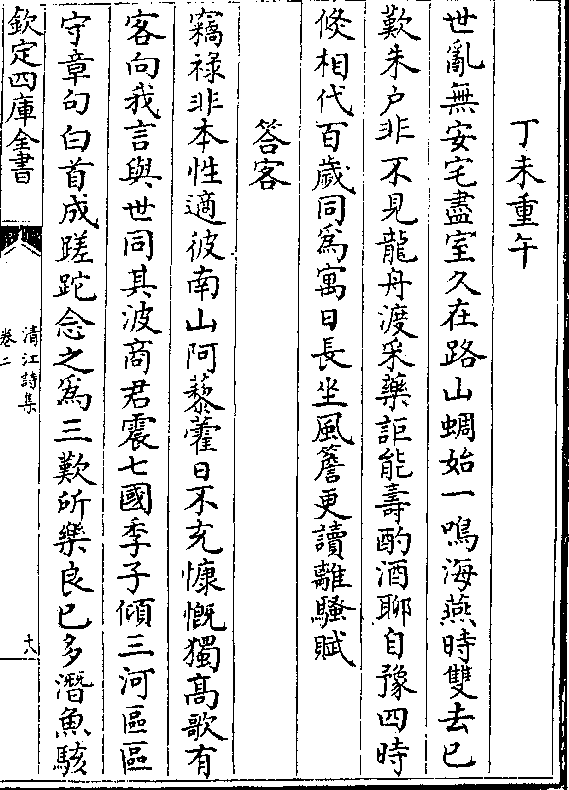 丁未重午
世亂無安宅盡室久在路山蜩始一鳴海燕時雙去已
歎朱户非不見龍舟渡采藥詎能壽酌酒聊自豫四時
倐相代百歲同為寓日長坐風簷更讀離騷賦
答客
竊祿非本性適彼南山阿藜藿日不充慷慨獨高歌有
客向我言與世同其波商君震七國季子傾三河區區
守章句白首成蹉跎念之為三歎所樂良已多潛魚駭
欽定四庫全書
清江詩集
卷二
十八